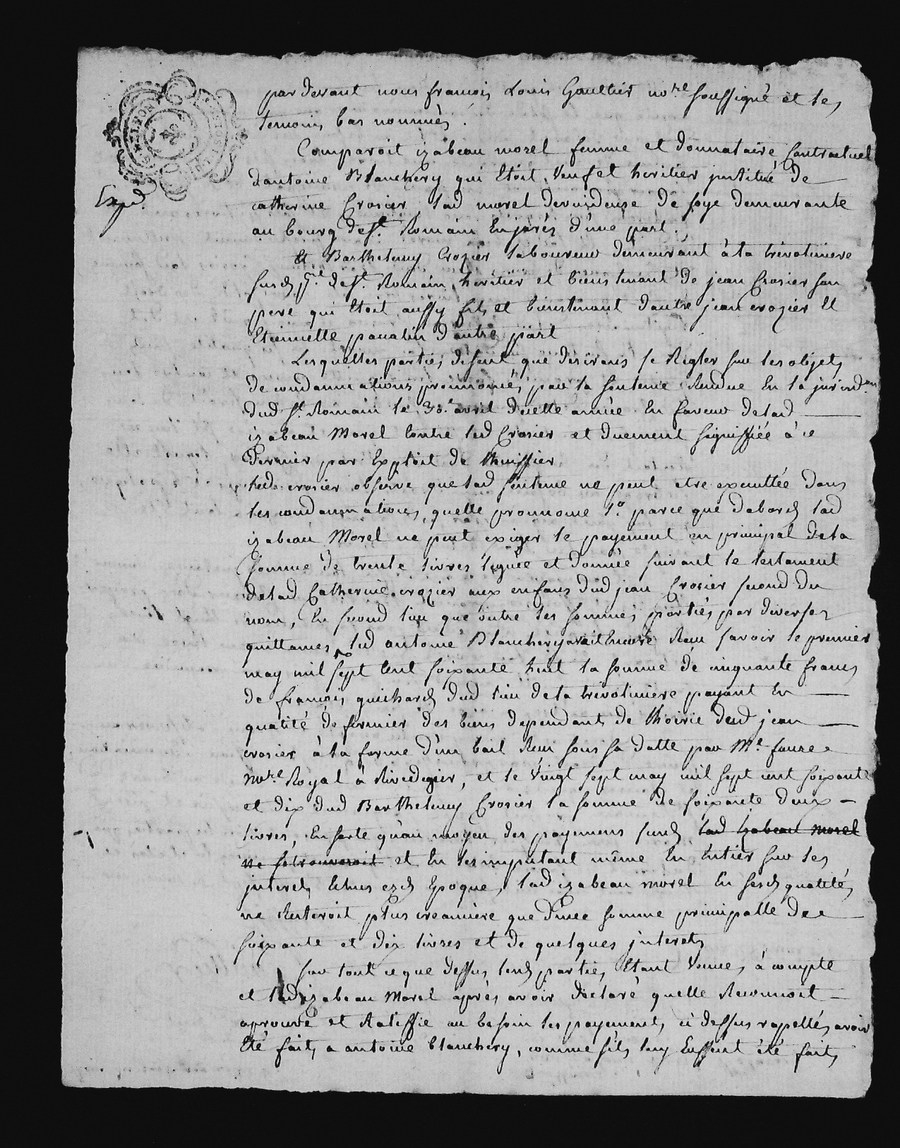 par devant nous françois Louis Gaultier no.re soussigné et les
temoins bas nommés.
Comparoit izabeau morel femme et donnataire contractuel
dantoine Blanchery qui étoit veuf et héritier institué de
Expd.
catherine Crosier lad morel devuideuse de soye demeurante
au bourg de st. Romain en jarés d'une part.
Et Barthelemy Crosier laboureur demeurant à la trévoliniere
susd p.se de st. Romain, heritier et bientenant de jean Crosier son
pere qui étoit aussy fils et bientenant dautre jean crozier et
Etiennette d'autre part
Lesquelles parties disent que désirans se Régler sur les objets
de condannations prononcés par la sentence Rendue En la jurisd.on
dud st. Romain le 30.e avril de cette année En faveur de lad
izabeau Morel Contre led Crosier et duement signiffiée à ce
dernier par Exploit de huissier
led. crosier observe que lad sentence ne peut etre executtée dans
les condannations quelle prononce 1.o parce que dabord lad
izabeau Morel ne peut exiger le payement en principal de la
somme de trente livres léguée et donnée suivant le testament
de lad Catherine crozier aux enfans dud jean Crosier second du
nom, En second lieu que outre les sommes portées par diverses
quittances, led antoine Blanchery avait encore Reçu savoir le premier
may mil sept Cent soixante huit la somme de cinquante francs
de françois guichard dud lieu de la trévoliniere payant En
qualité de fermier des biens dependant de lhoirie dud jean
crosier à la forme d'un bail Reçu sous sa datte par Me. faure
no.re Royal à Rivedegier, et le vingt sept may mil sept cent soixante
et dix dud Barthelemy Crosier la somme de soixante deux
livres, En sorte qu'au moyen des payemens susd lad Izabeau morel
ne se trouveroit et En les imputant même En Entier sur les
interets Echus esd Epoque, lad izabeau morel En sesd qualités
ne Resteroit plus creanciere que d'une somme principalle de
soixante et dix livres et de quelques interets
sur tout ce que dessus lesd parties Etant venues à compte
et lad izabeau Morel après avoir déclaré quelle Reconnoit
aprouve et Ratiffie au besoin les payements ci dessus rappellés avoir
été faits a antoine blanchery, comme s'ils luy Eussent été faits